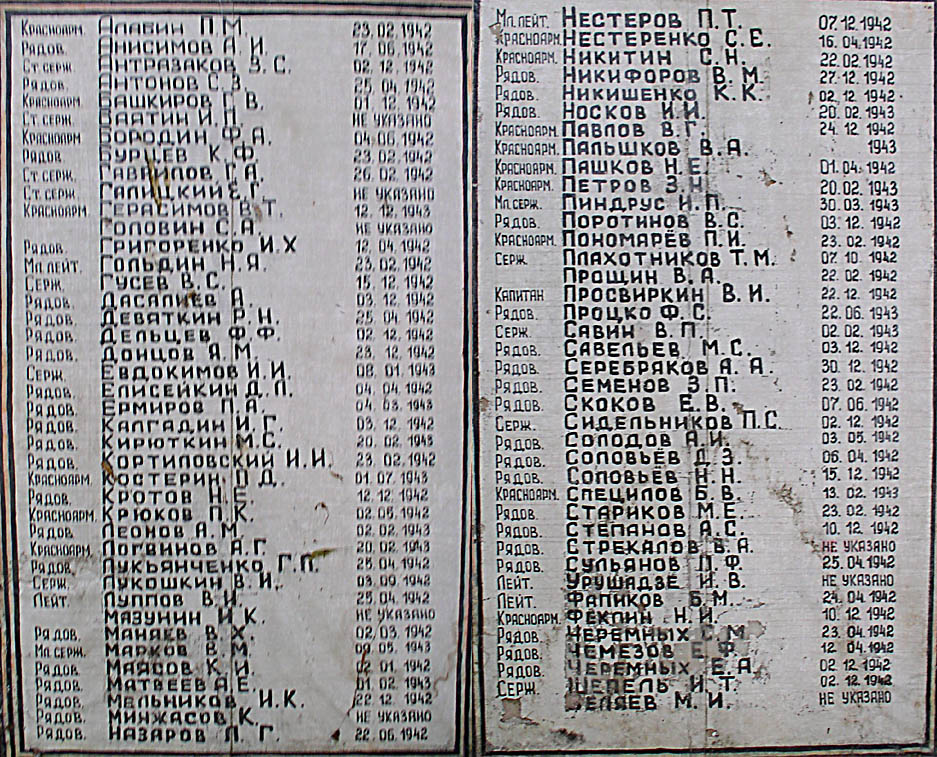 Красноарм. Алабин П.М. 23.02.1942
Рядов. Анисимов А.И. 17.06.1942
Ст.серж. Антразаков В.С. 02.12.1942
Рядов. Антонов С.З. 25.04.1942
Красноарм. Башкиров Г.В. 01.12.1942
Ст.серж. Баятин И.П. не указано
Красноарм. Бородин Ф.А. 04.06.1942
Рядов. Бурцев К.Ф. 23.02.1942
Ст.серж. Гаврилов Г.А. 26.02.1942
Ст.серж. Галицкий Е.Г. не указано
Красноарм. Герасимов В.Т. 12.12.1943
Головин С.А. не указано
Рядов. Григоренко И.Х 12.04.1942
Мл.лейт. Гольдин Н.Я. 23.02.1942
Серж. Гусев В.С. 15.12.1942
Рядов. Дасалиев А. 03.12.1942
Рядов. Девяткин Р.Н. 25.04.1942
Рядов. Дельцев Ф.Ф. 02.12.1942
Рядов. Донцов Я.М. 23.12.1942
Серж. Евдокимов И.И. 08.01.1943
Рядов. Елисейкин Д.Л. 04.04.1942
Рядов. Ермиров П.А. 04.03.1943
Рядов. Калгадин И.Г. 03.12.1942
Рядов. Кирюткин М.С. 20.02.1943
Рядов. Кортиловский И.И. 23.02.1942
Красноарм. Костерин П.Д. 01.07.1943
Рядов. Кротов Н.Е. 12.12.1942
Красноарм. Крюков П.К. 02.05.1942
Рядов. Леонов А.М. 02.02.1943
Красноарм. Логвинов А.Г. 20.02.1943
Рядов. Лукьянченко Г.П. 25.04.1942
Серж. Лукошкин В.И. 03.09.1942
Лейт. Луппов В.И. 25.04.1942
Мазунин И.К. не указано
Рядов. Маняев В.Х. 02.03.1942
Мл.серж. Марков В.М. 09.05.1943
Рядов. Маясов К.И. 02.01.1942
Рядов. Матвеев А.Е. 01.02.1943
Рядов. Мельников И.К. 22.12.1942
Рядов. Минжасов К. не указано
Рядов. Назаров Л.Г. 22.06.1942
Мл.лейт. Нестеров П.Т. 07.12.1942
Красноарм. Нестеренко С.Е. 16.04.1942
Красноарм. Никитин С.Н. 22.02.1942
Рядов. Никифоров В.М. 27.12.1942
Рядов. Никишенко К.К. 02.12.1942
Рядов. Носков И.И. 20.02.1943
Красноарм. Павлов В.Г. 24.12.1942
Красноарм. Палышков В.А. 1943
Красноарм. Пашков Н.Е. 01.04.1942
Красноарм. Петров З.Н 20.02.1943
Мл.серж. Пиндрус И.П. 30.03.1943
Рядов. Поротинов В.С. 03.12.1942
Красноарм. Пономарёв П.И. 23.02.1942
Серж. Плахотников Т.М. 07.10.1942
Прощин В.А. 22.02.1942
Капитан Просвиркин В.И. 22.12.1942
Рядов. Процко Ф.С. 22.06.1943
Серж. Савин В.П. 02.02.1943
Рядов. Савельев М.С. 03.12.1942
Рядов. Серебряков А.А. 30.12.1942
Рядов. Семенов З.П. 23.02.1942
Рядов. Скоков Е.В. 07.06.1942
Серж. Сидельников П.С. 02.12.1942
Рядов. Солодов А.И. 03.05.1942
Рядов. Соловьёв Д.З. 06.04.1942
Рядов. Соловьёв Н.Н. 15.12.1942
Красноарм. Специлов Б.В. 13.02.1943
Рядов. Стариков М.Е. 23.02.1942
Рядов. Степанов А.С. 10.12.1942
Рядов. Стрекалов В.А. не указано
Рядов. Сульянов П.Ф. 25.04.1942
Лейт. Урушадзе И.В. не указано
Лейт. Фапиков Б.М. 24.04.1942
Красноарм. Феклин Н.И. 10.12.1942
Рядов. Черемных С.М 23.04.1942
Рядов. Чемезов Е.Ф. 12.04.1942
Рядов. Черемных Е.А 02.12.1942
Серж. Шепель И.Т. 02.12.1942
Беляев М.И. не указано